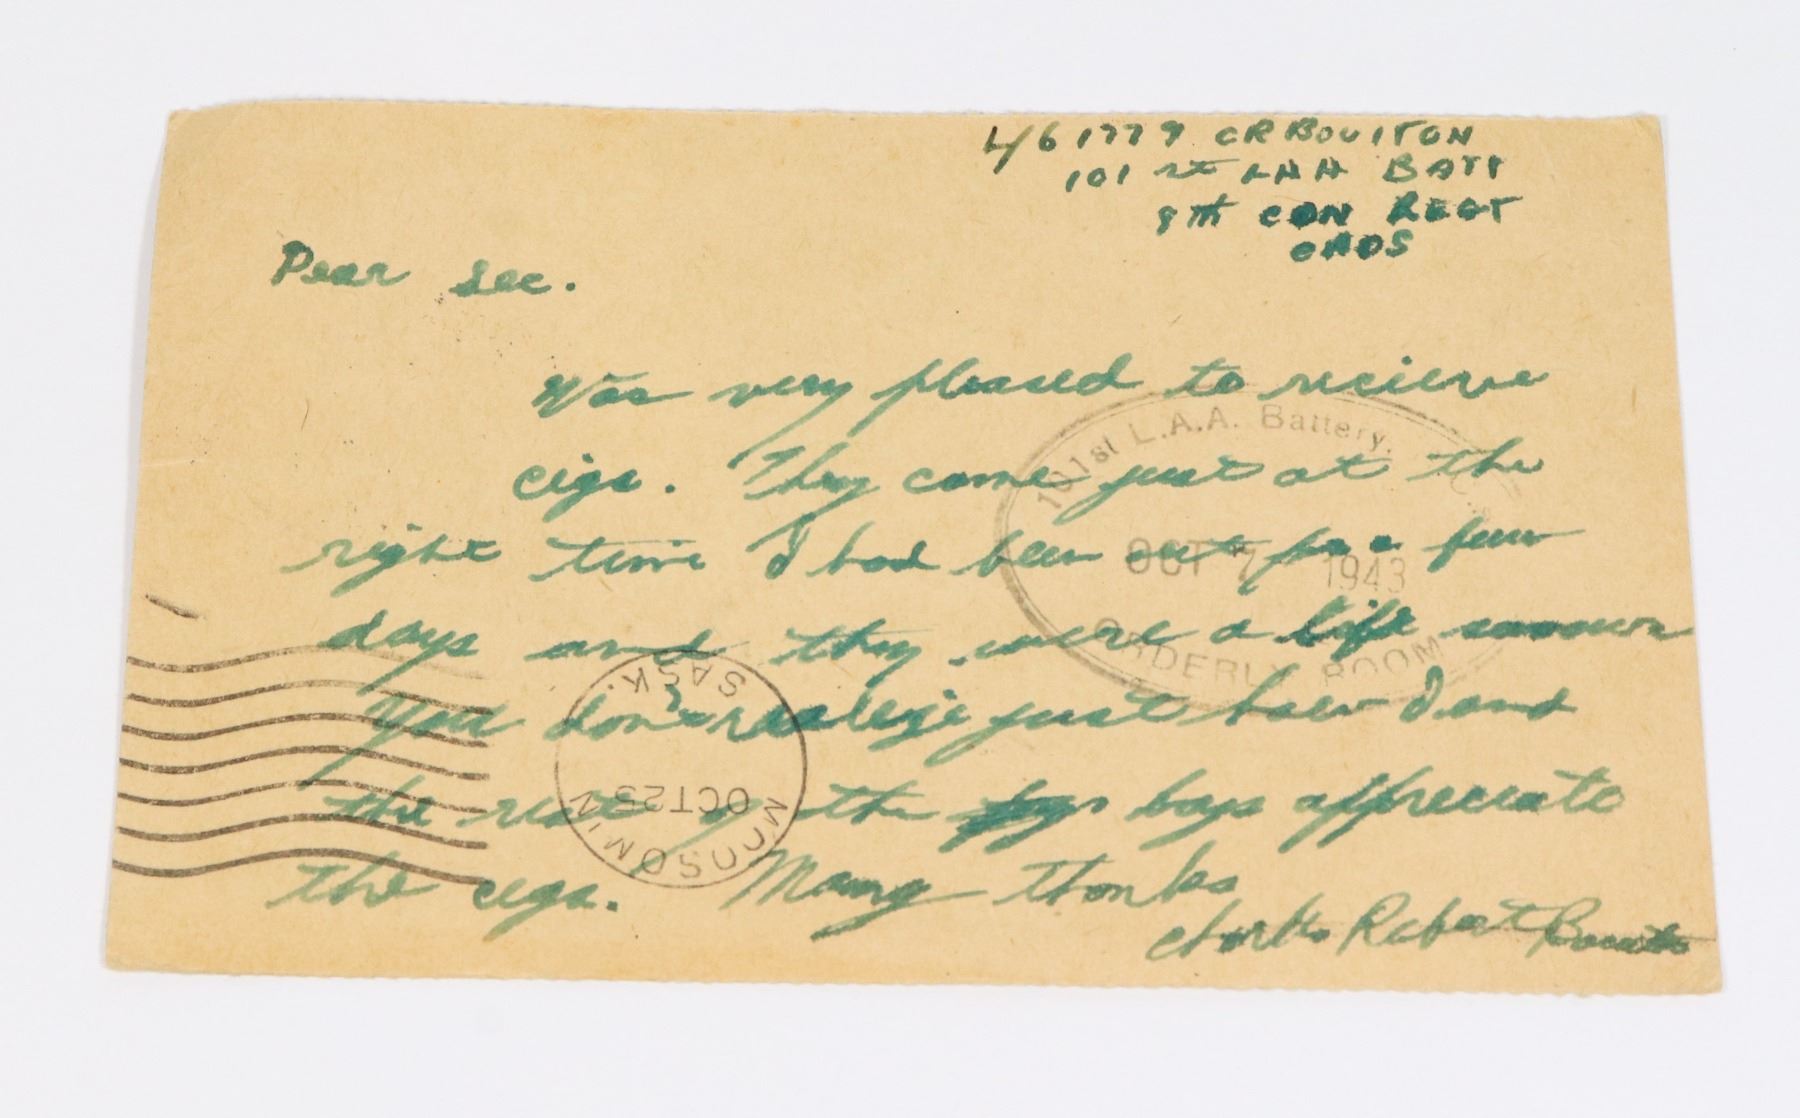 L/61779 CR BOULTON
101 st LAA BATT
8th CDN REGT
Dear Sec.
Was very pleased to recieve
cigs. They came just at the
right time I had been out for a few
days and they were a life
You don't realize just how I and
the rest of the boys appreciate
the cigs. Many thanks
Charles Robert Boulton
101st L.A.A. Battery.
OCT 7 1943
ORDERLY ROOM
MOOSOMIN
OCT 25
SASK.